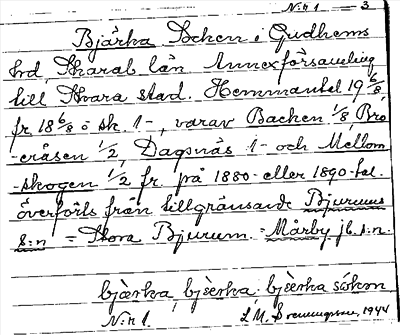 N:r 1 — 3
Bjärka Socken i Gudhems
hd, Skarab. län Annexförsamling
till Skara stad. Hemmantal 19 6/8
fr 18 6/8 o sk. 1-, varav Backen 1/8, Bro-
-eråsen 1/2, Dagsnäs 1- och Mellom
-skogen 1/2 fr. på 1880- eller 1890-tal.
överförts från tillgränsande Bjurums
s:n = Stora Bjurum. = Mårby jb. s.n.
bjærka, bjærka, bjærka sókon
N:r 1. 1944